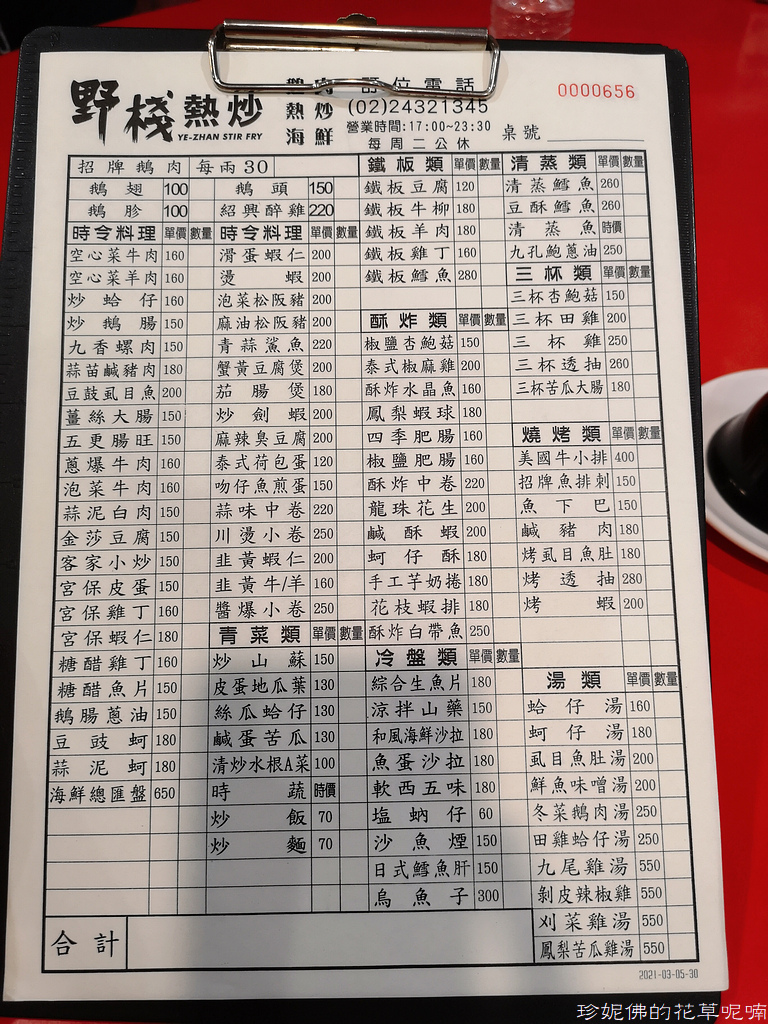 野棧熱炒
YE-ZHAN STIR FRY
鵝肉
熱炒
海鮮
訂位電話
(02)24321345
營業時間:17:00~23:30
每周二公休
0000656
桌號
招牌鵝肉 每兩30
鵝翅 100 鵝頭 150
鵝胗 100 紹興醉雞 220
時令料理 單價 數量
空心菜牛肉 160
空心菜羊肉 160
炒蛤仔 160
炒鵝腸 150
九香螺肉 150
蒜苗鹹豬肉 180
豆鼓虱目魚 200
薑絲大腸 150
五更腸旺 150
蔥爆牛肉 160
泡菜牛肉 160
蒜泥白肉 150
金莎豆腐 150
客家小炒 150
宮保皮蛋 150
宮保雞丁 160
宮保蝦仁 180
糖醋雞丁 160
糖醋魚片 150
鵝腸蔥油 150
豆豉蚵 180
蒜泥蚵 180
海鮮總匯盤 650
時令料理 單價 數量
滑蛋蝦仁 200
燙蝦 200
泡菜松阪豬 200
麻油松阪豬 200
青蒜鯊魚 220
蟹黃豆腐煲 200
茄腸煲 180
炒劍蝦 200
麻辣臭豆腐 200
泰式荷包蛋 120
吻仔魚煎蛋 150
蒜味中卷 220
川燙小卷 250
韭黃蝦仁 200
韭黃牛/羊 160
醬爆小卷 250
青菜類 單價 數量
炒山蘇 150
皮蛋地瓜葉 130
絲瓜蛤仔 130
鹹蛋苦瓜 130
清炒水根A菜 100
時蔬 時價
炒飯 70
炒麵 70
鐵板類 單價 數量
鐵板豆腐 120
鐵板牛柳 180
鐵板羊肉 180
鐵板雞丁 160
鐵板鱈魚 280
酥炸類 單價 數量
椒鹽杏鮑菇 150
泰式椒麻雞 200
酥炸水晶魚 160
鳳梨蝦球 180
四季肥腸 160
椒鹽肥腸 160
酥炸中卷 220
龍珠花生 200
鹹酥蝦 200
蚵仔酥 180
手工芋奶捲 180
花枝蝦排 180
酥炸白帶魚 250
冷盤類 單價 數量
綜合生魚片 180
涼拌山藥 150
和風海鮮沙拉 180
魚蛋沙拉 180
軟西五味 180
塩蚋仔 60
沙魚煙 150
日式鱈魚肝 150
烏魚子 300
清蒸類 單價 數量
清蒸鱈魚 260
豆酥鱈魚 260
清蒸魚 時價
九孔鮑蔥油 250
三杯類 單價 數量
三杯杏鮑菇 150
三杯田雞 200
三杯雞 250
三杯透抽 260
三杯苦瓜大腸 180
燒烤類 單價 數量
美國牛小排 400
招牌魚排刺 150
魚下巴 150
鹹豬肉 180
烤虱目魚肚 180
烤透抽 280
烤蝦 200
湯類 單價 數量
蛤仔湯 160
蚵仔湯 180
虱目魚肚湯 200
鮮魚味噌湯 200
冬菜鵝肉湯 250
田雞蛤仔湯 250
九尾雞湯 550
剝皮辣椒雞 550
刈菜雞湯 550
鳳梨苦瓜雞湯 550
合計
2021-03-05-30
珍妮佛的花草呢喃